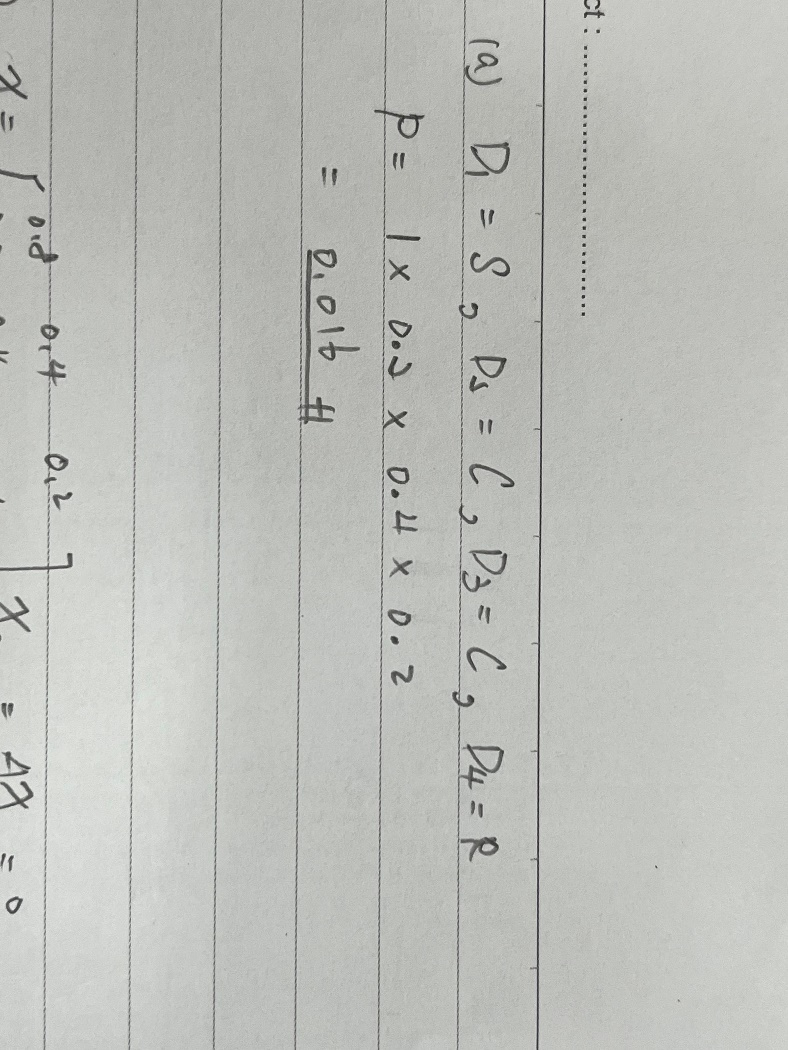 ct : ................................
(a) D1 = S, Ds = C, D3 = C, D4 = R
P = 1 x 0.2 x 0.4 x 0.2
= 0.016 #
0.8 0.4 0.2
x = [ ] x = Ax = 0